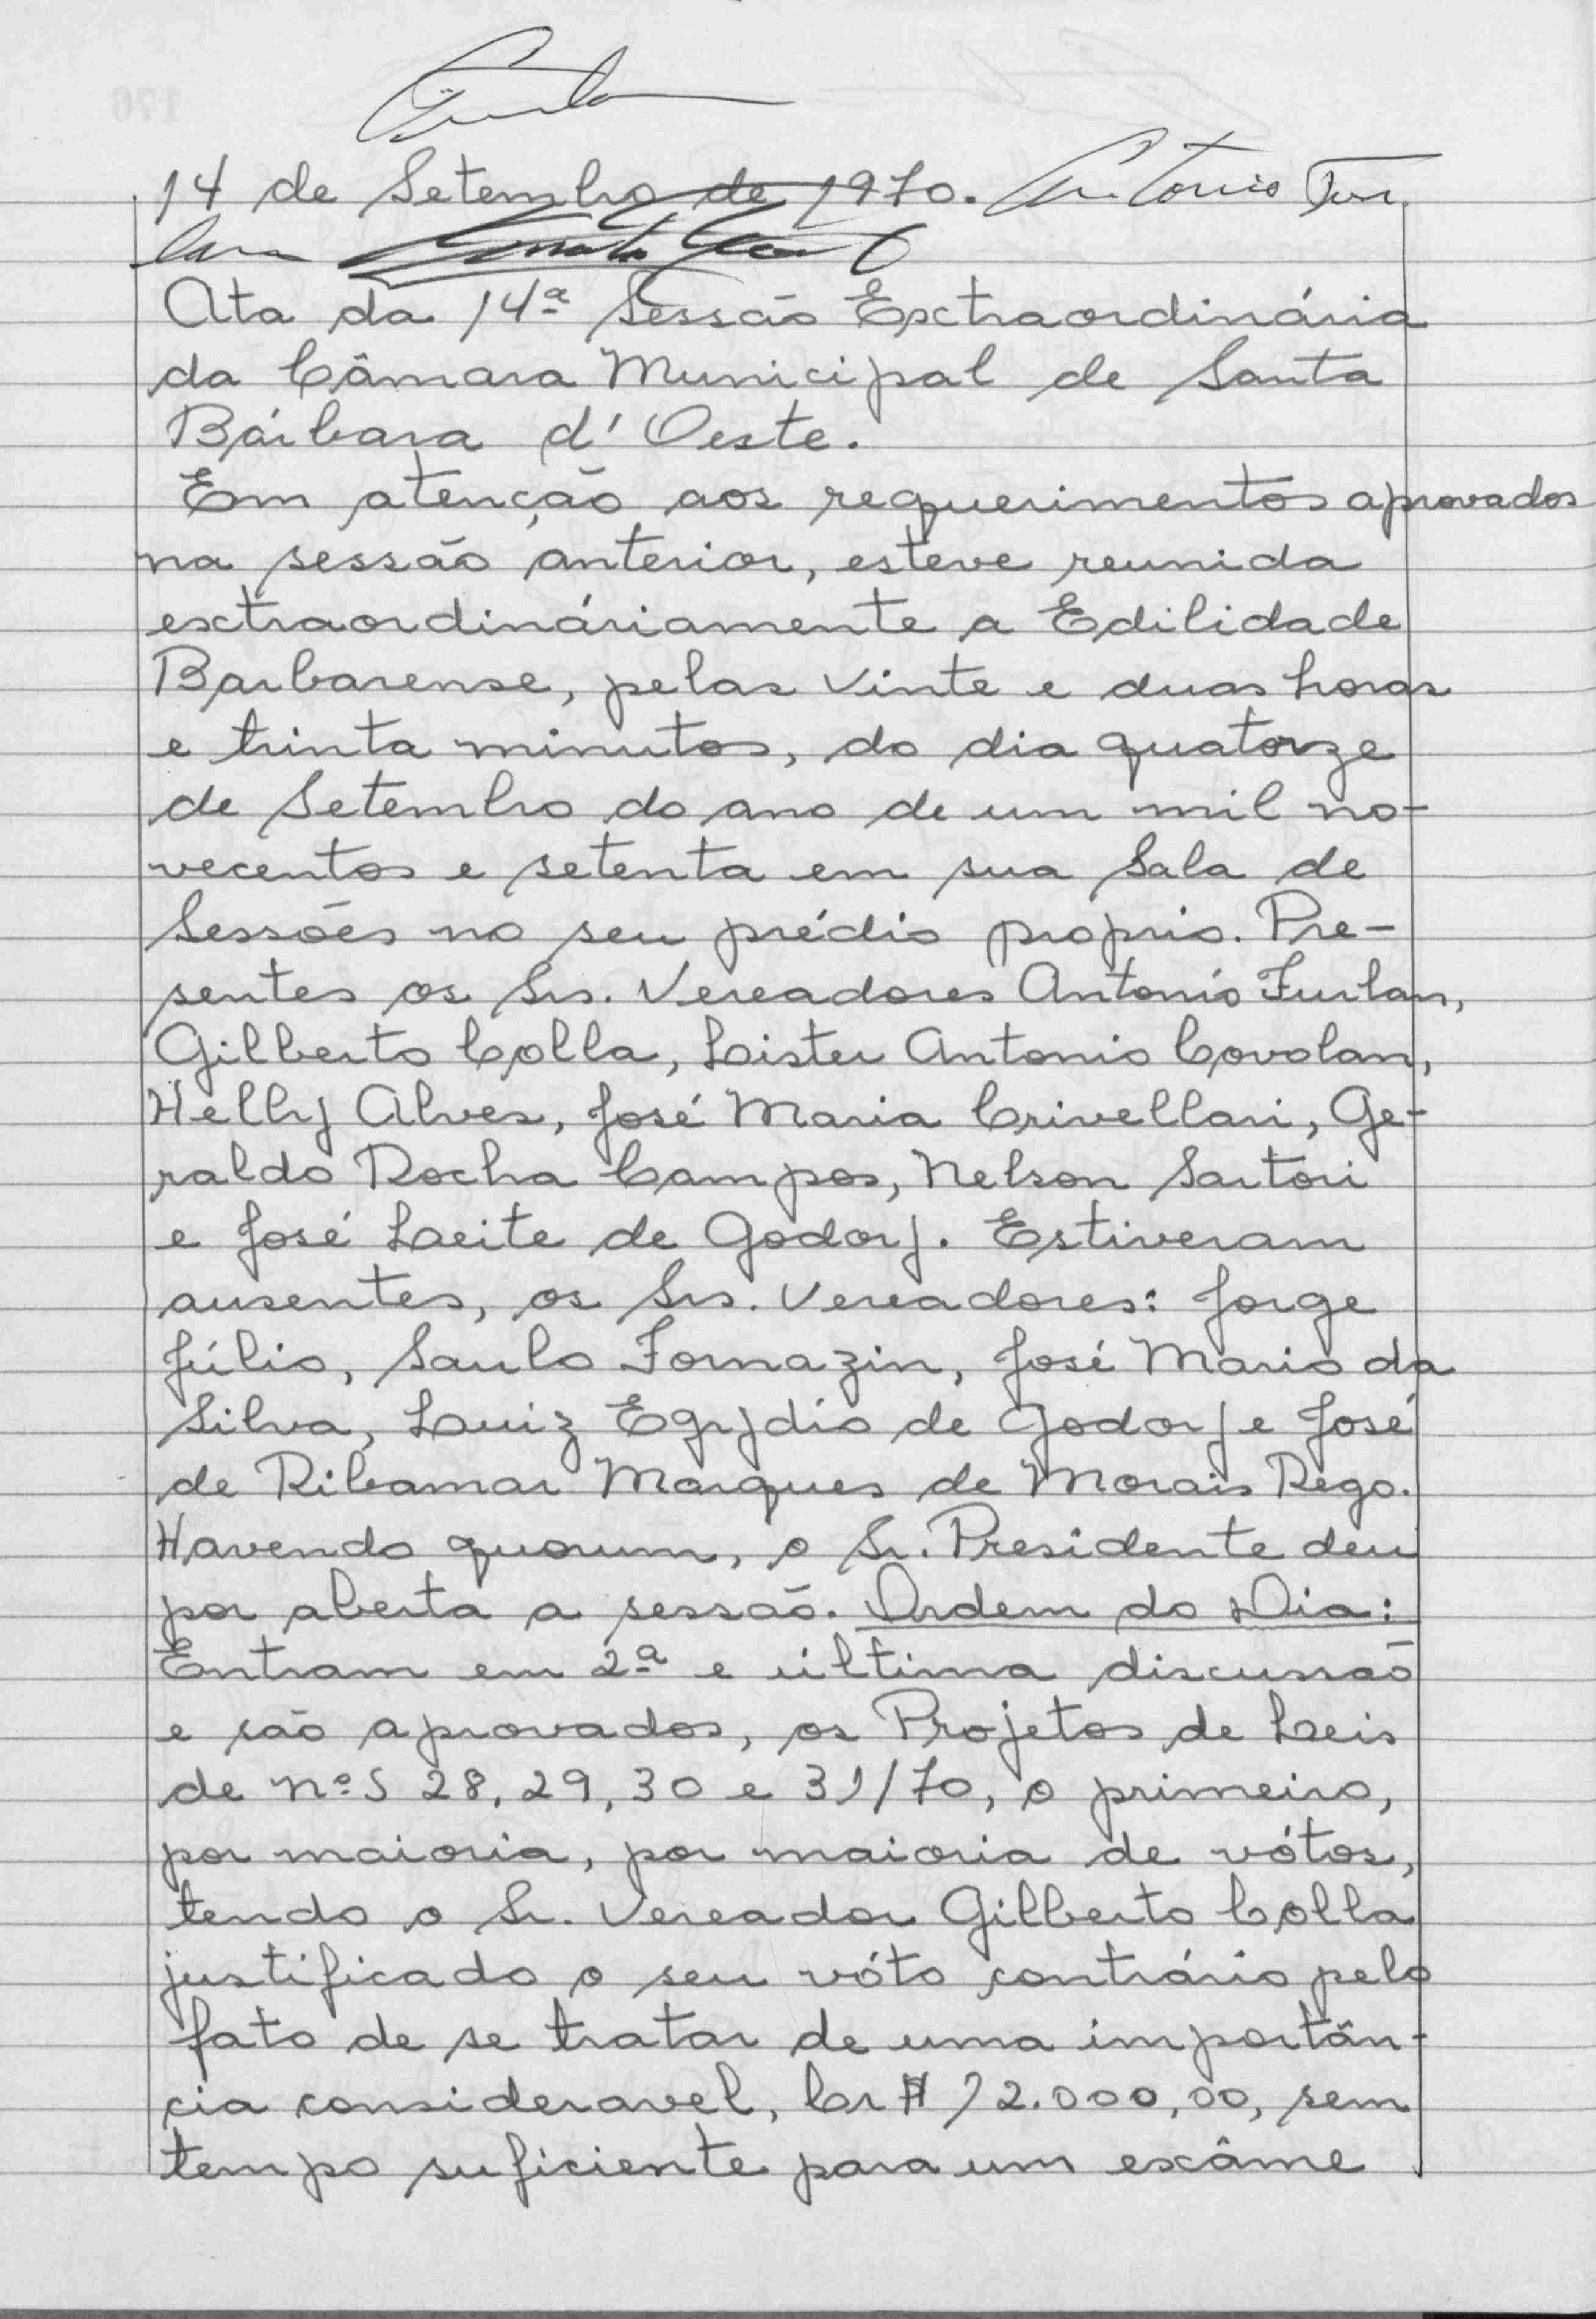 14 de Setembro de 1970. Antonio Fur
lan
Ata da 14ª Sessão Extraordinária
da Câmara Municipal de Santa
Bárbara d'Oeste.
Em atenção aos requerimentos aprovados
na sessão anterior, esteve reunida
extraordináriamente a Edilidade
Barbarense, pelas vinte e duas horas
e trinta minutos, do dia quatorze
de Setembro do ano de um mil no-
vecentos e setenta em sua Sala de
Sessões no seu prédio proprio. Pre-
sentes os Srs. Vereadores Antonio Furlan,
Gilberto Colla, Lister Antonio Covolan,
Helly Alves, José Maria Crivellari, Ge-
raldo Rocha Campos, Nelson Sartori
e José Leite de Godoy. Estiveram
ausentes, os Srs. Vereadores: Jorge
Júlio, Saulo Fornazin, José Mario da
Silva, Luiz Egydio de Godoy e José
de Ribamar Marques de Morais Rego.
Havendo quorum, o Sr. Presidente deu
por aberta a sessão. Ordem do Dia:
Entram em 2ª e última discussão
e são aprovados, os Projetos de Leis
de nºs 28, 29, 30 e 31/70, o primeiro,
por maioria, por maioria de vótos,
tendo o Sr. Vereador Gilberto Colla
justificado o seu vóto contrário pelo
fato de se tratar de uma importân-
cia consideravel, Cr$ 12.000,00, sem
tempo suficiente para um exâme